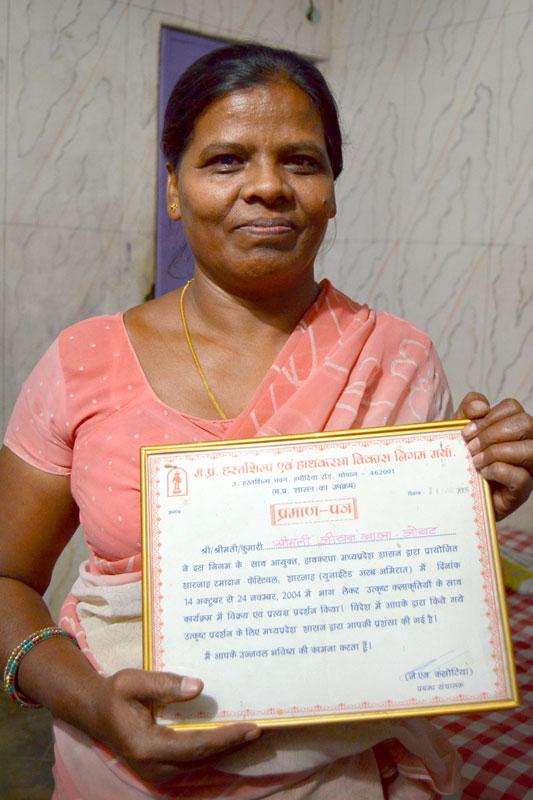 म.प्र. हस्तशिल्प एवं हाथकरघा विकास निगम मर्या.
3, हस्तशिल्प भवन, हमीदिया रोड, भोपाल - 462001
(म.प्र. शासन का उपक्रम)
क्रमांक
दिनांक
प्रमाण-पत्र
श्री/श्रीमती/कुमारी श्रीमती
ने इस निगम के साथ आयुक्त, हाथकरघा मध्यप्रदेश शासन द्वारा प्रायोजित
शारजाह रमादान फेस्टिवल, शारजाह (युनाईटेड अरब अमिरात) में दिनांक
14 अक्टूबर से 24 नवम्बर, 2004 में भाग लेकर उत्कृष्ट कलाकृतियों के साथ
कार्यक्रम में विक्रय एवं प्रत्यक्ष प्रदर्शन किया। विदेश में आपके द्वारा किये गये
उत्कृष्ट प्रदर्शन के लिए मध्यप्रदेश शासन द्वारा आपकी प्रशंसा की गई है।
मैं आपके उज्जवल भविष्य की कामना करता हूँ।
प्रबन्ध संचालक